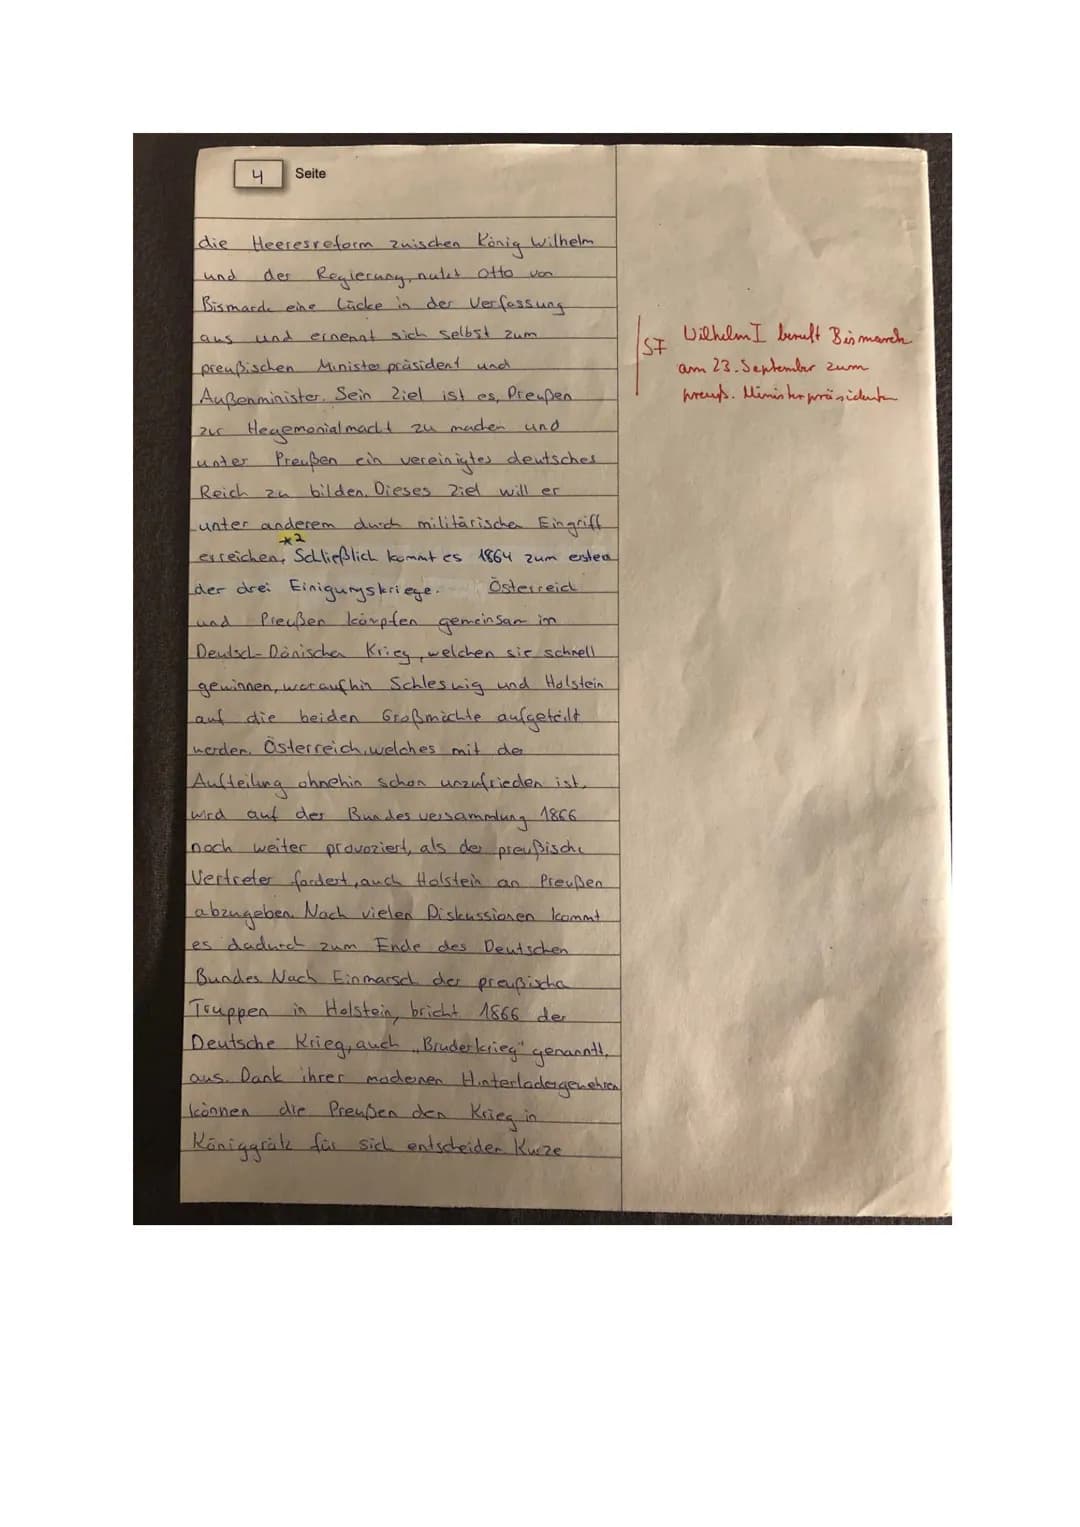 4 Seite
die Heeresreform zwischen König Wilhelm
und der Regierung, nutzt Otto von
Bismarck eine Lücke in der Verfassung
aus und ernennt sich selbst zum
preußischen Ministerpräsident und
Außenminister. Sein Ziel ist es, Preußen
zur Hegemonialmacht zu machen und
unter Preußen ein vereinigtes deutsches
Reich zu bilden. Dieses Ziel will er
unter anderem durch militärische Eingriff
*2
erreichen. Schließlich kommt es 1864 zum ersten
der drei Einigungskriege. Österreich
und Preußen kämpfen gemeinsam im
Deutsch-Dänischen Krieg, welchen sie schnell
gewinnen, woraufhin Schleswig und Holstein
auf die beiden Großmächte aufgeteilt
werden. Österreich, welches mit der
Aufteilung ohnehin schon unzufrieden ist,
wird auf der Bundesversammlung 1866
noch weiter provoziert, als der preußische
Vertreter fordert, auch Holstein an Preußen
abzugeben. Nach vielen Diskussionen kommt
es dadurch zum Ende des Deutschen
Bundes. Nach Einmarsch der preußischen
Truppen in Holstein, bricht 1866 der
Deutsche Krieg, auch „Bruderkrieg" genannt,
aus. Dank ihrer modernen Hinterladergewehren
können die Preußen den Krieg in
Königgrätz für sich entscheiden. Kurze
SF Wilhelm I beruft Bismarck
am 23. September zum
preuß. Ministerpräsidenten